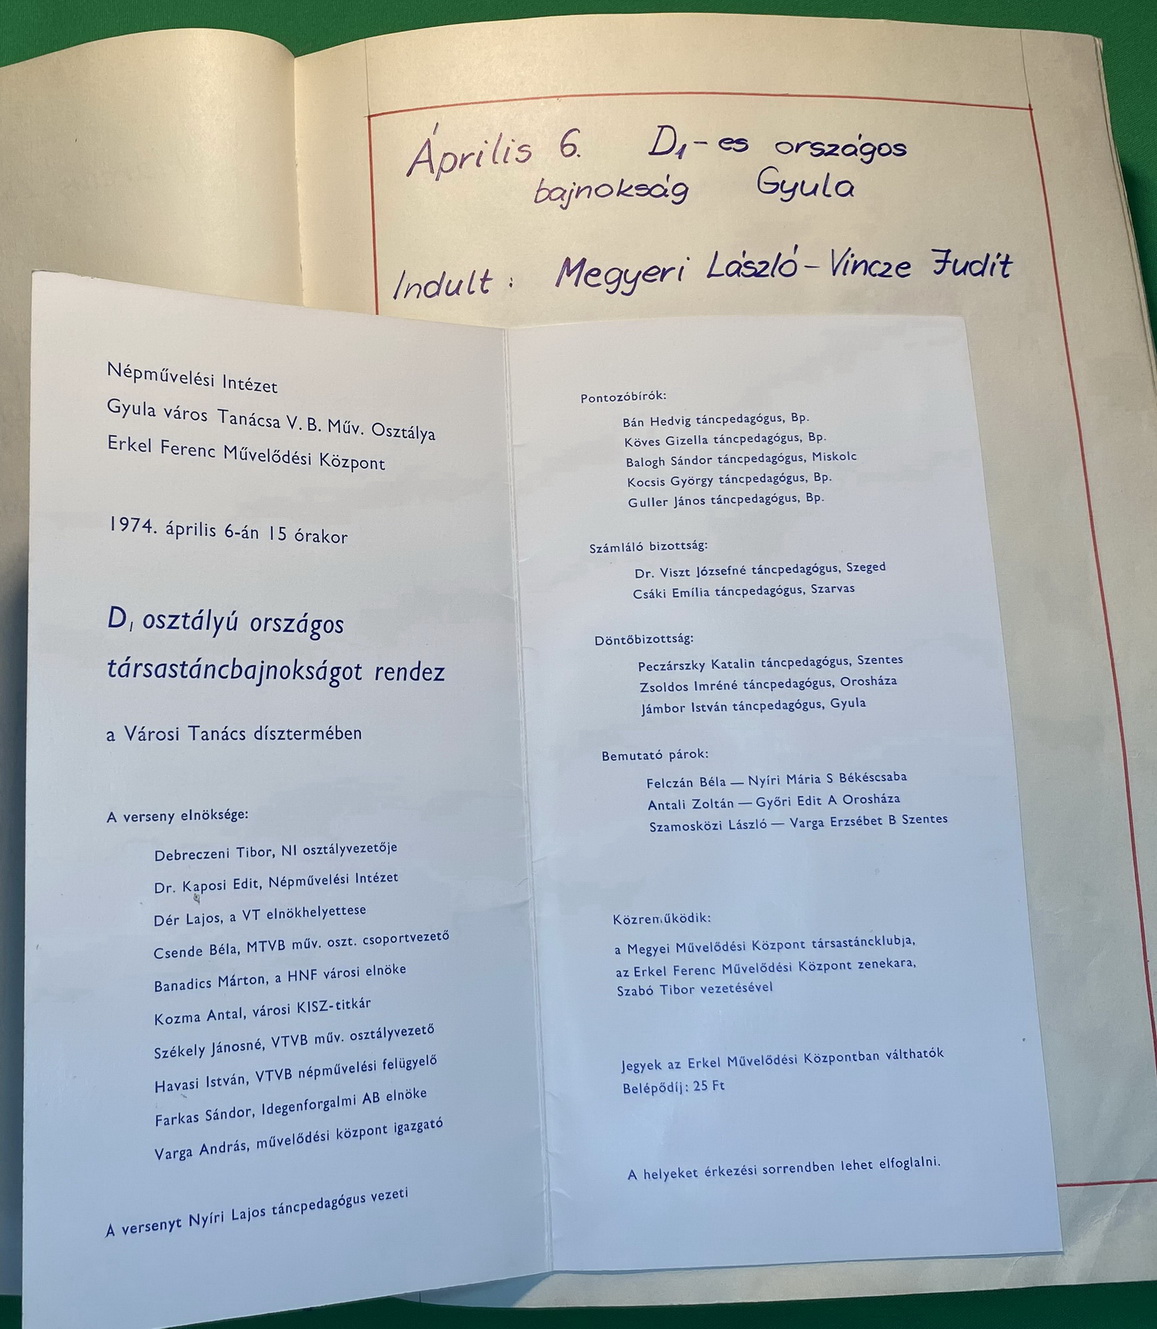 Április 6. D1-es országos
bajnokság Gyula
Indult: Megyeri László - Vincze Judit
Népművelési Intézet
Gyula város Tanácsa V. B. Műv. Osztálya
Erkel Ferenc Művelődési Központ
1974. április 6-án 15 órakor
D1 osztályú országos
társastáncbajnokságot rendez
a Városi Tanács dísztermében
A verseny elnöksége:
Debreczeni Tibor, NI osztályvezetője
Dr. Kaposi Edit, Népművelési Intézet
Dér Lajos, a VT elnökhelyettese
Csende Béla, MTVB műv. oszt. csoportvezető
Banadics Márton, a HNF városi elnöke
Kozma Antal, városi KISZ-titkár
Székely Jánosné, VTVB műv. osztályvezető
Havasi István, VTVB népművelési felügyelő
Farkas Sándor, Idegenforgalmi AB elnöke
Varga András, művelődési központ igazgató
A versenyt Nyíri Lajos táncpedagógus vezeti
Pontozóbírók:
Bán Hedvig táncpedagógus, Bp.
Köves Gizella táncpedagógus, Bp.
Balogh Sándor táncpedagógus, Miskolc
Kocsis György táncpedagógus, Bp.
Guller János táncpedagógus, Bp.
Számláló bizottság:
Dr. Viszt Józsefné táncpedagógus, Szeged
Csáki Emília táncpedagógus, Szarvas
Döntőbizottság:
Peczárszky Katalin táncpedagógus, Szentes
Zsoldos Imréné táncpedagógus, Orosháza
Jámbor István táncpedagógus, Gyula
Bemutató párok:
Felczán Béla — Nyíri Mária S Békéscsaba
Antali Zoltán — Győri Edit A Orosháza
Szamosközi László — Varga Erzsébet B Szentes
Közreműködik:
a Megyei Művelődési Központ társastáncklubja,
az Erkel Ferenc Művelődési Központ zenekara,
Szabó Tibor vezetésével
Jegyek az Erkel Művelődési Központban válthatók
Belépődíj: 25 Ft
A helyeket érkezési sorrendben lehet elfoglalni.